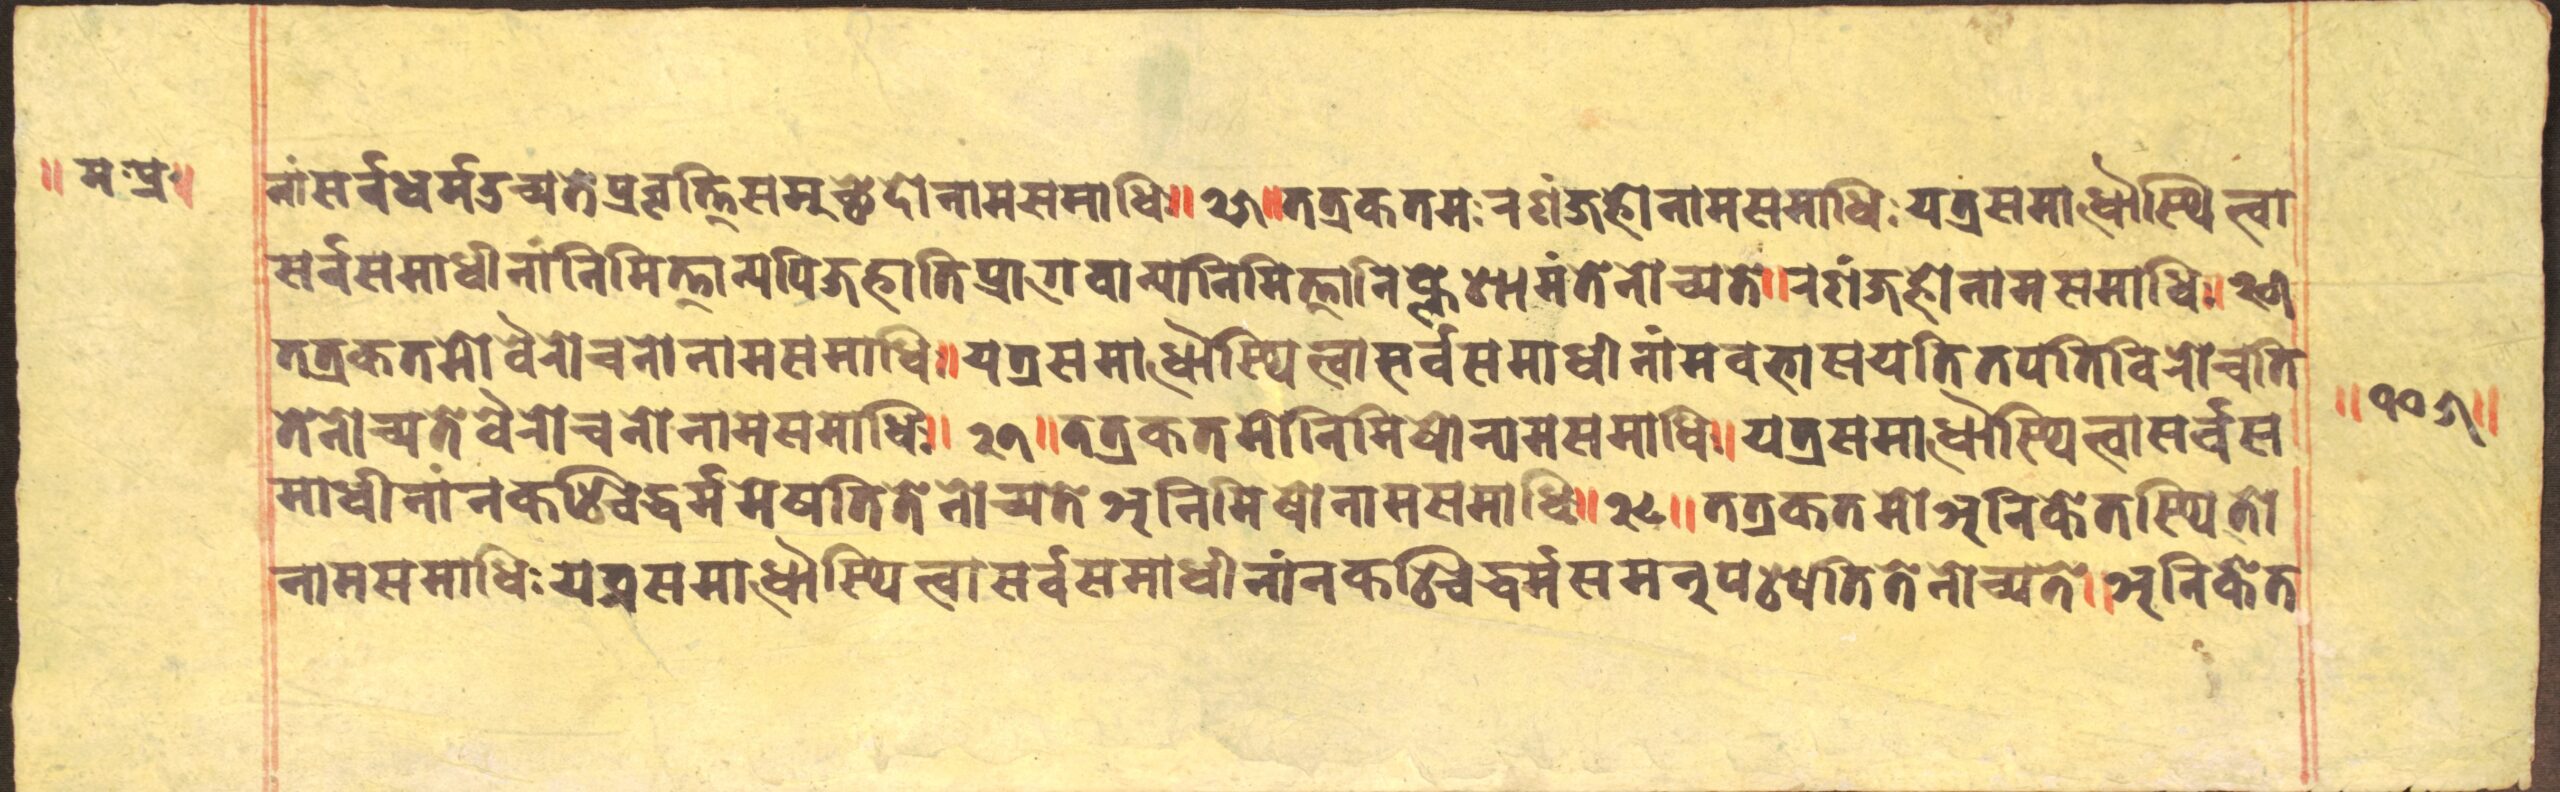 ॥ म॰प्र॰॥
नांसर्वधर्मउच्यतेप्रवृत्तिसमुच्छेदोनामसमाधिः॥ २५ ॥तत्रकतमःरणंजहोनामसमाधिः यत्रसमाधौस्थित्वा
सर्वसमाधीनांनिमित्तान्यपिजहातिप्रागेवान्यानिमित्तानि मंतेनोच्यते॥रणंजहोनामसमाधिः॥ २६
तत्रकतमोवैरोचनोनामसमाधिः॥यत्रसमाधौस्थित्वासर्वसमाधीनांमवभासयतितपतिविरोचति
तेनोच्यतेवैरोचनोनामसमाधिः॥ २७॥तत्रकतमोनिमिषोन्यमसमाधिः॥यत्रसमाधौस्थित्वासर्वस
माधीनांनकश्चिद्धर्ममेषतितेनोच्यतेअनिमिषोनामसमाधिः॥२८॥तत्रकतमोअनिकेतस्थितो
नामसमाधिः यत्रसमाधौस्थित्वासर्वसमाधीनांनकश्चिद्धर्मसमनुपश्यतितेनोच्यते॥अनिकेत
॥१०५॥